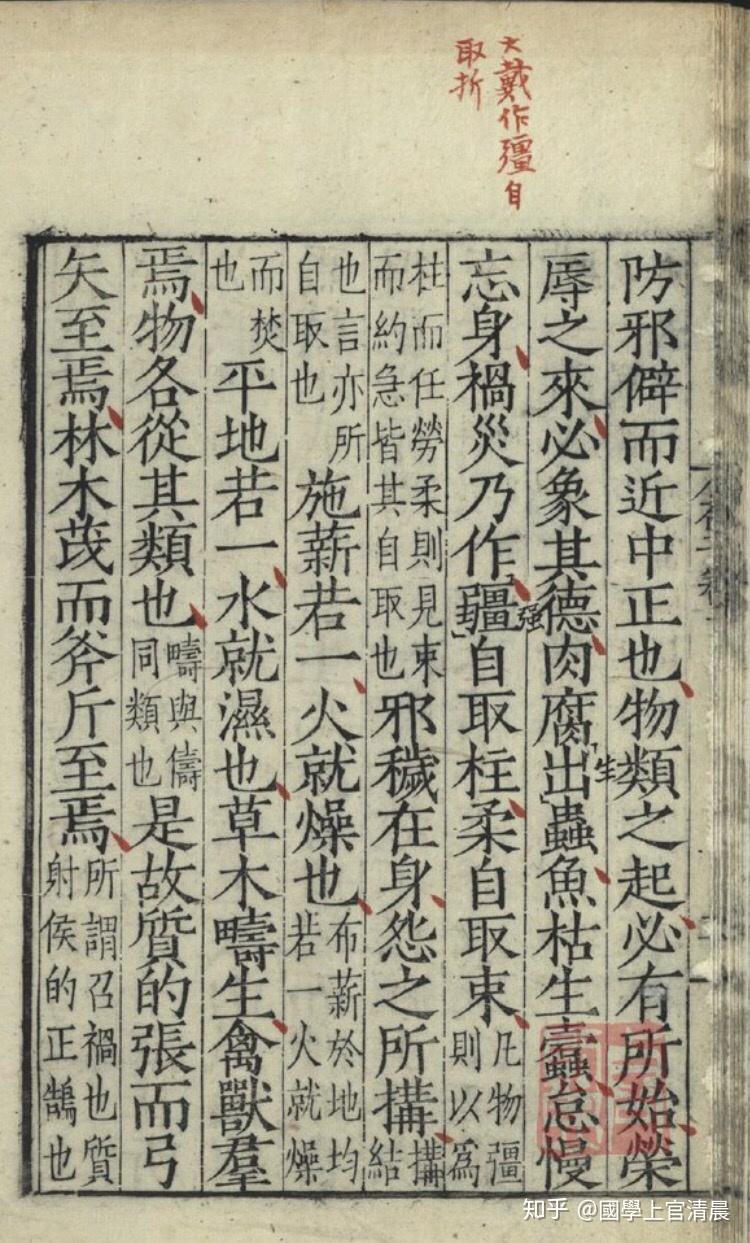 大戴作彊自
取折
防邪僻而近中正也物類之起必有所始榮
辱之來必象其德肉腐出蟲魚枯生蠹怠慢
生
忘身禍災乃作彊自取柱柔自取束凡物彊則以爲
強
柱而任勞柔則見束而約急皆其自取也邪穢在身怨之所搆搆結
也言亦所自取也施薪若一火就燥也布薪於地均若一火就燥
而焚也平地若一水就濕也草木疇生禽獸羣
焉物各從其類也疇與儔同類也是故質的張而弓
矢至焉林木茂而斧斤至焉所謂召禍也質射侯的正鵠也
知乎 @國學上官清晨